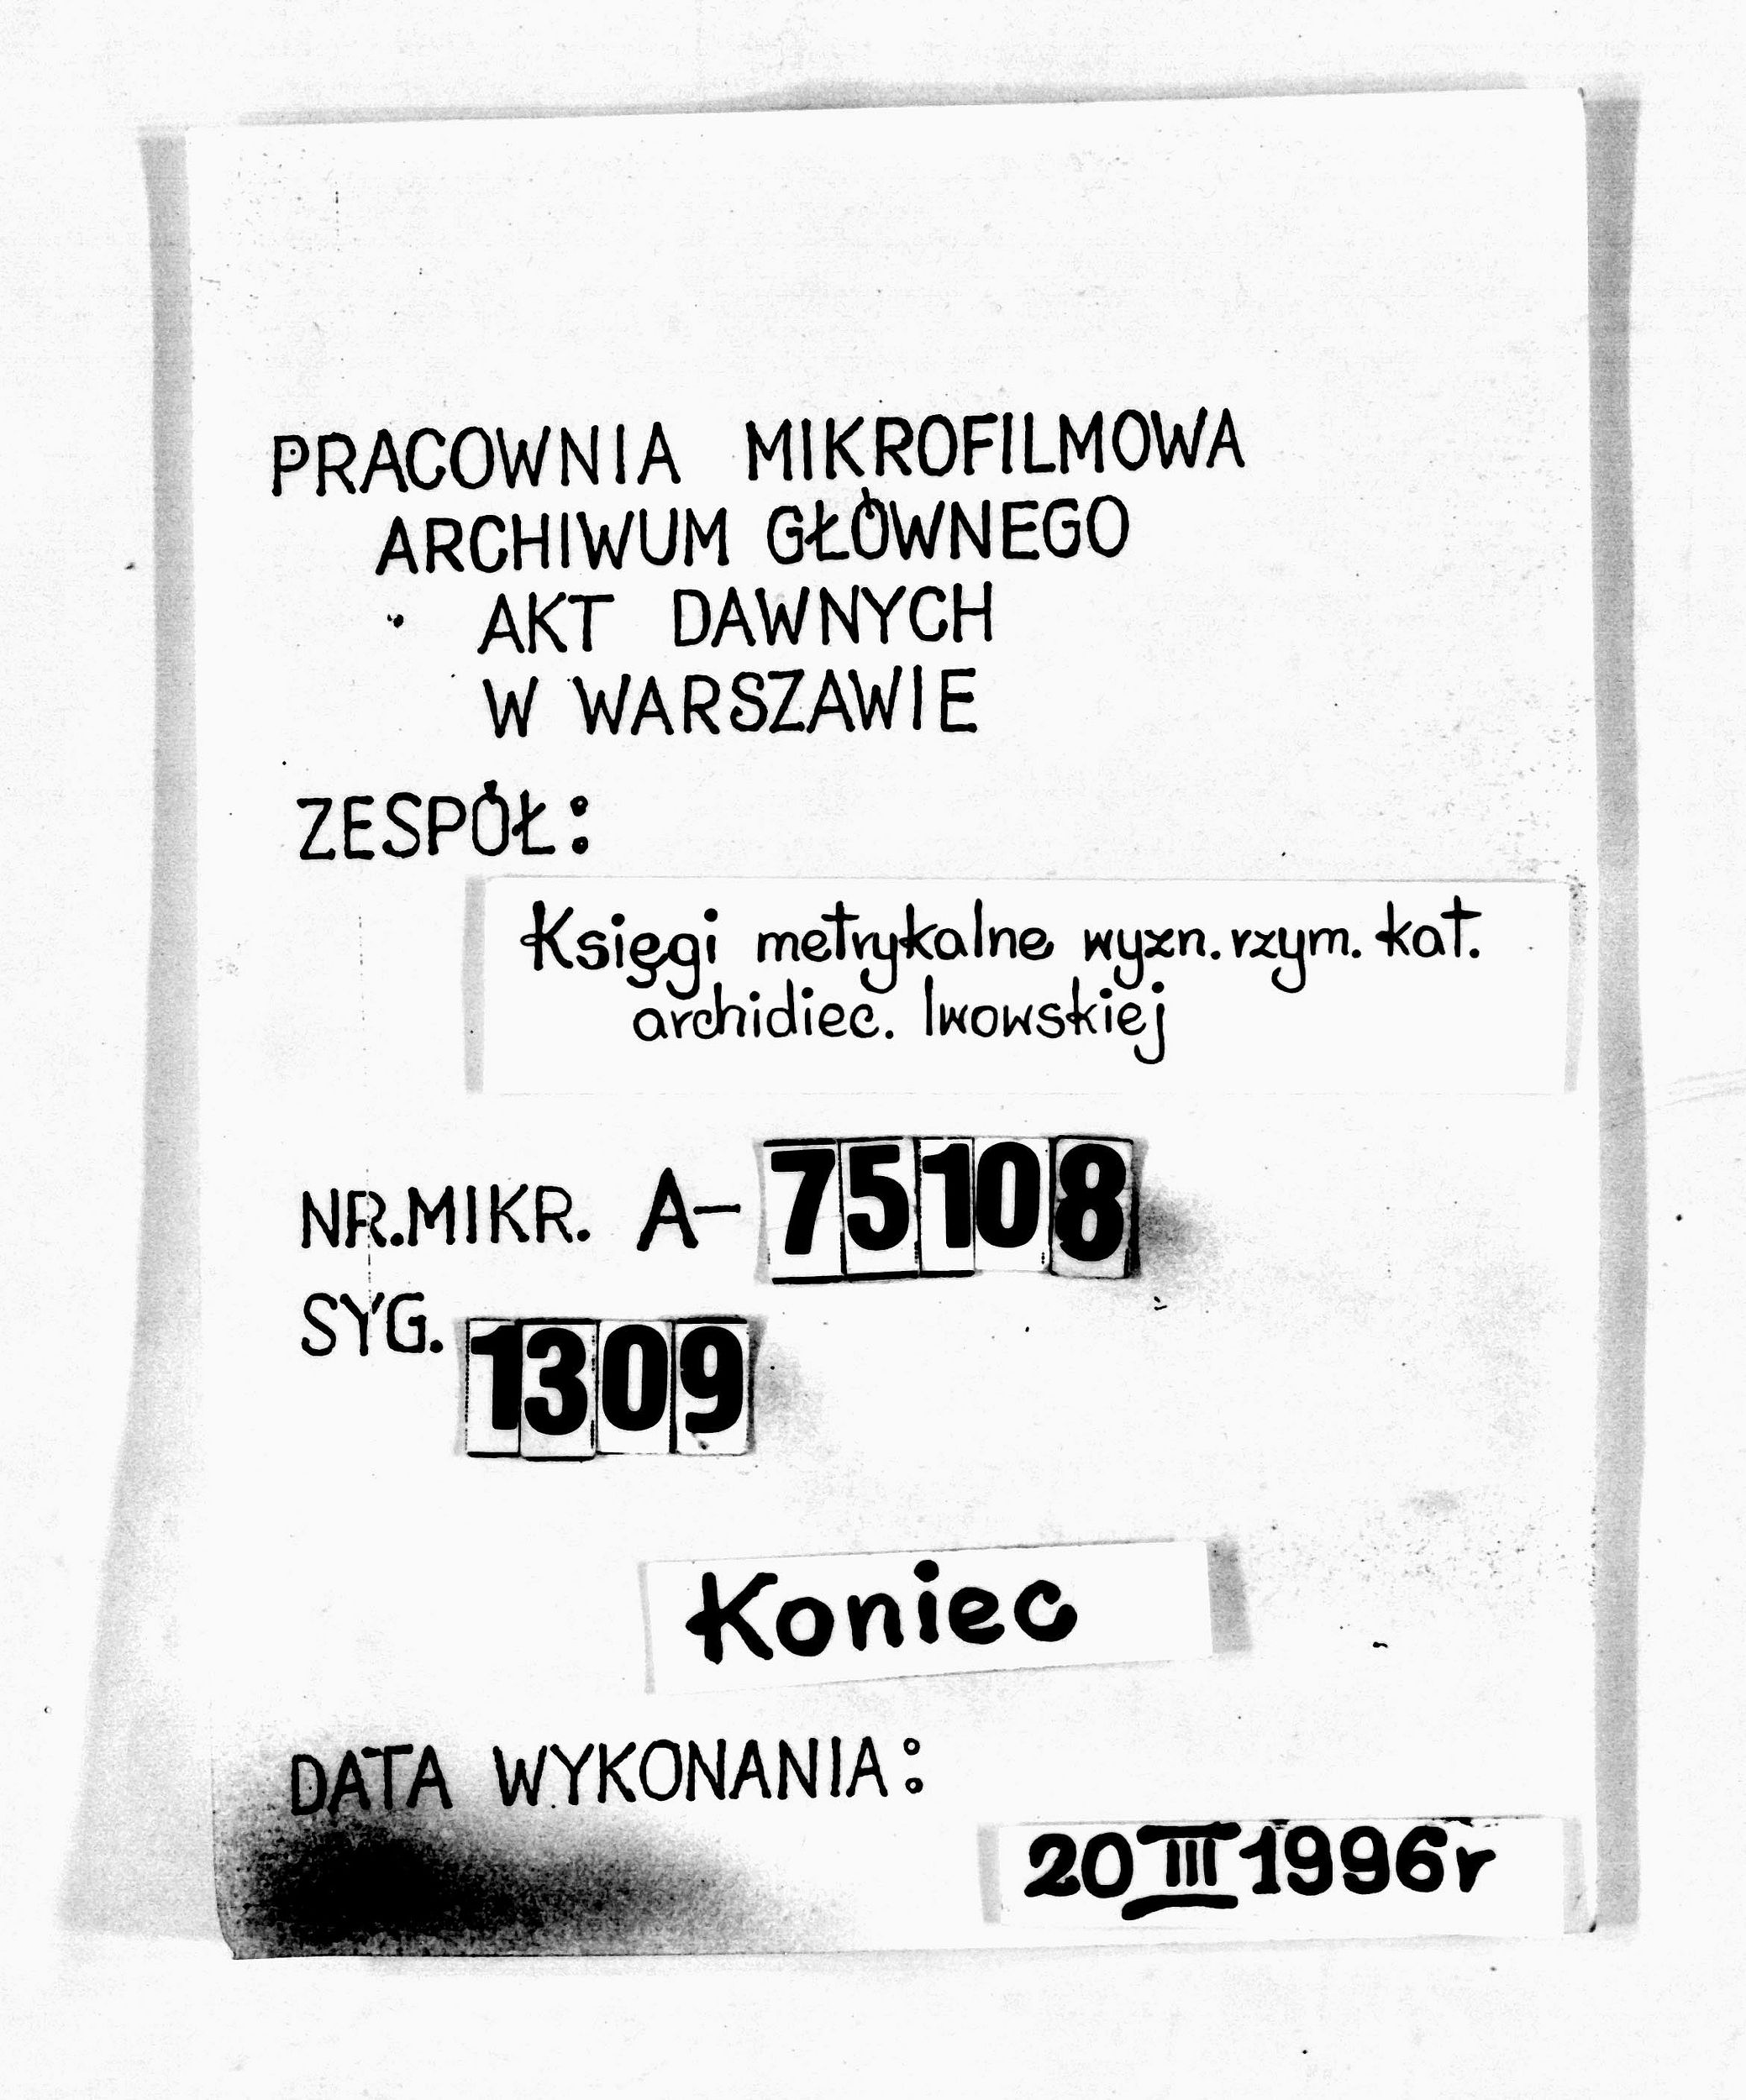 PRACOWNIA MIKROFILMOWA
ARCHIWUM GŁÓWNEGO
AKT DAWNYCH
W WARSZAWIE
ZESPÓŁ:
Księgi metrykalne wyzn. rzym. kat.
archidiec. lwowskiej
NR. MIKR. A- 75108
SYG. 1309
Koniec
DATA WYKONANIA:
20 III 1996r